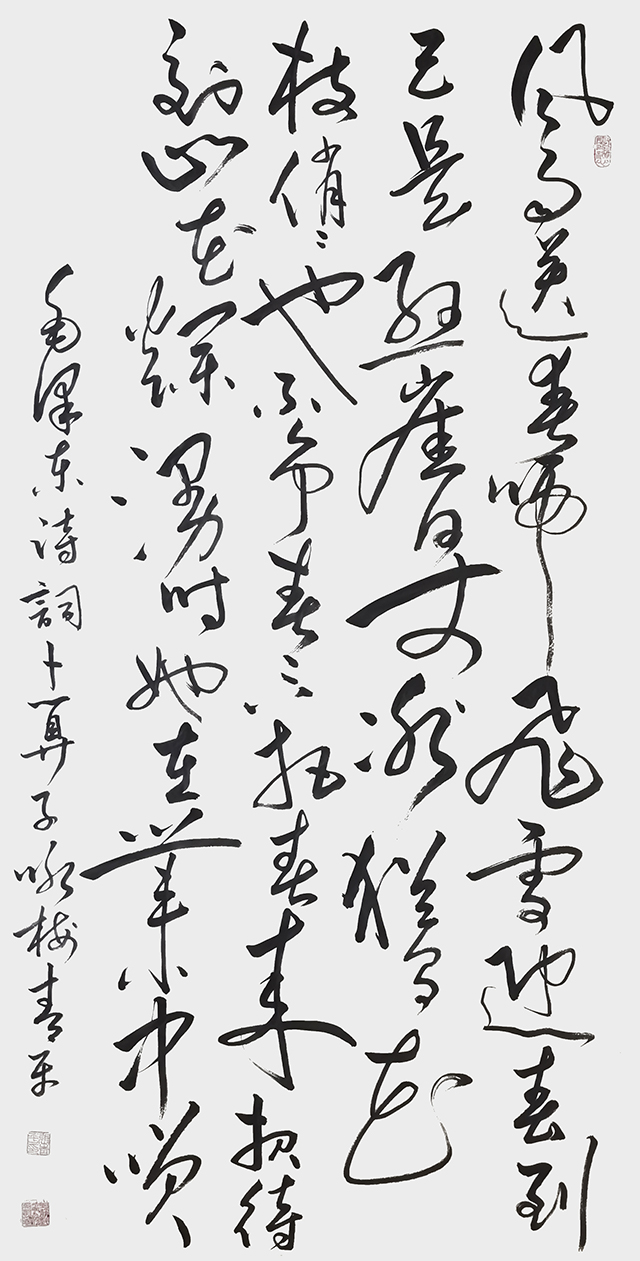 风雨送春归飞雪迎春到
已是悬崖百丈冰犹有花
枝俏〻也不争春只把春来报待
到山花烂漫时她在叢中笑
毛泽东诗詞卜算子咏梅